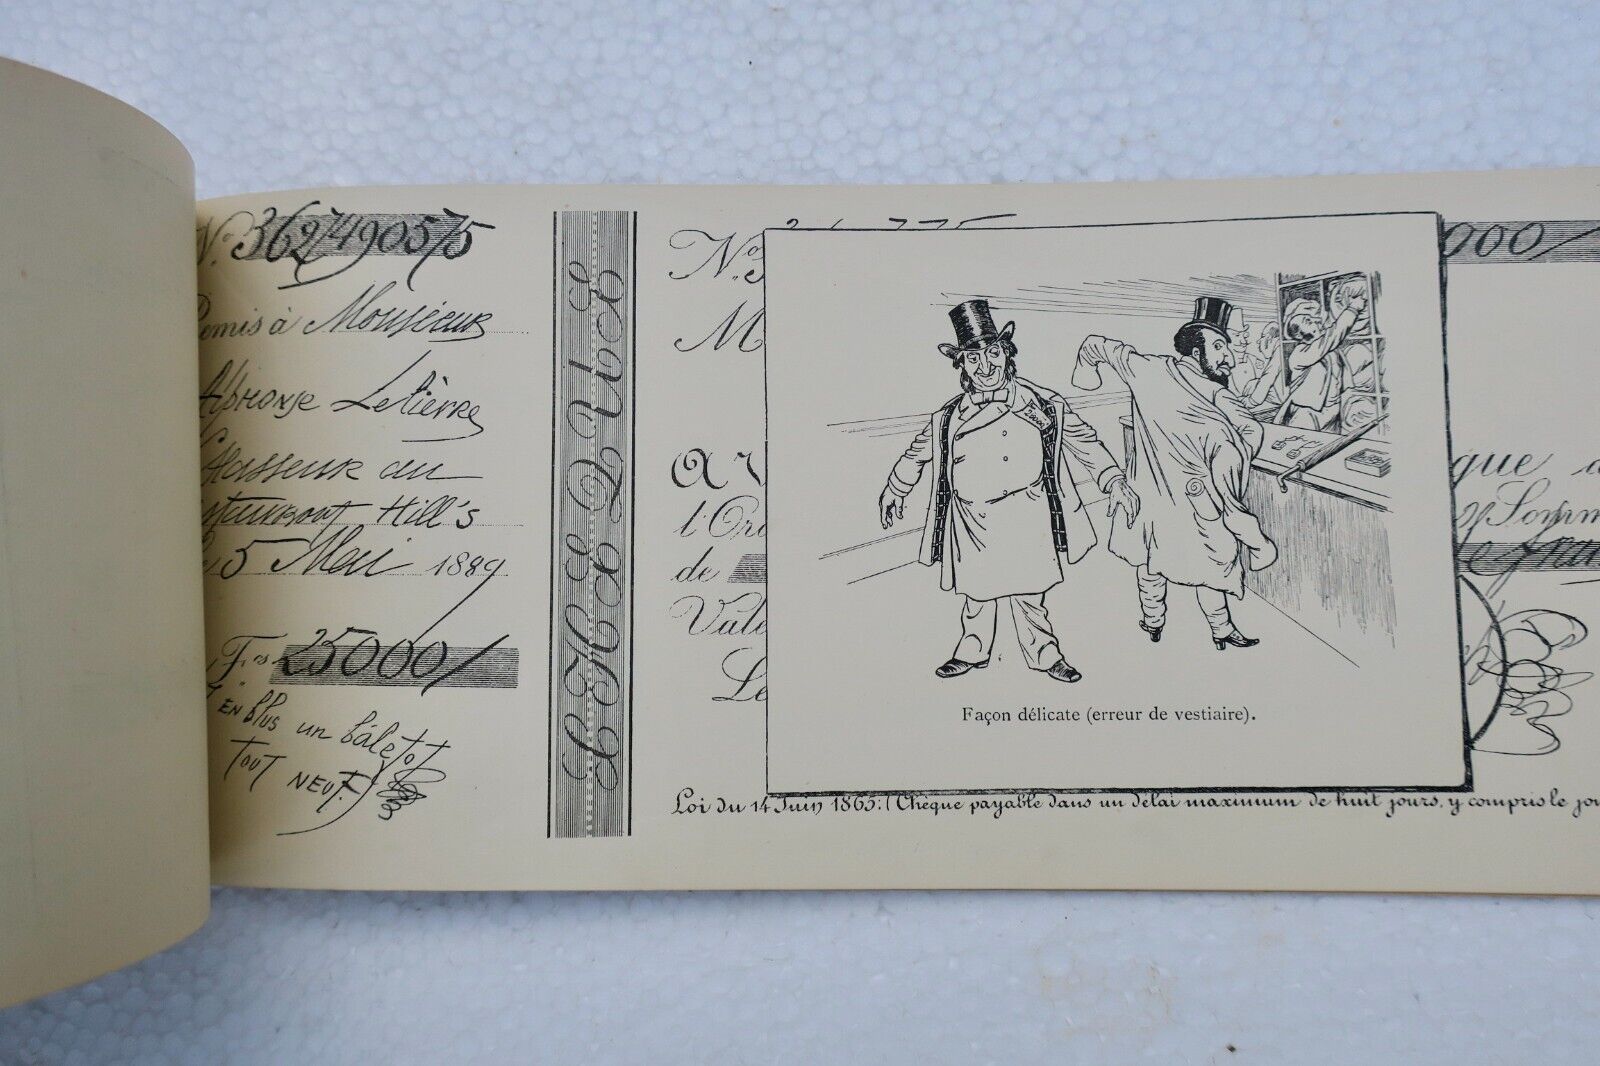 No. 3627490575
Remis à Monsieur
Alphonse Letierre
Chasseur au
Hill's
5 Mai 1889
Frs 25000/
EN Plus un pâletot
TOUT NEUF.
CHÈQUE
No. 3
M
1000/
que
A V
l'Or
de
Vale
Le
Somm
Fran
25000
Façon délicate (erreur de vestiaire).
Loi du 14 Juin 1865: (Chèque payable dans un délai maximum de huit jours, y compris le jou